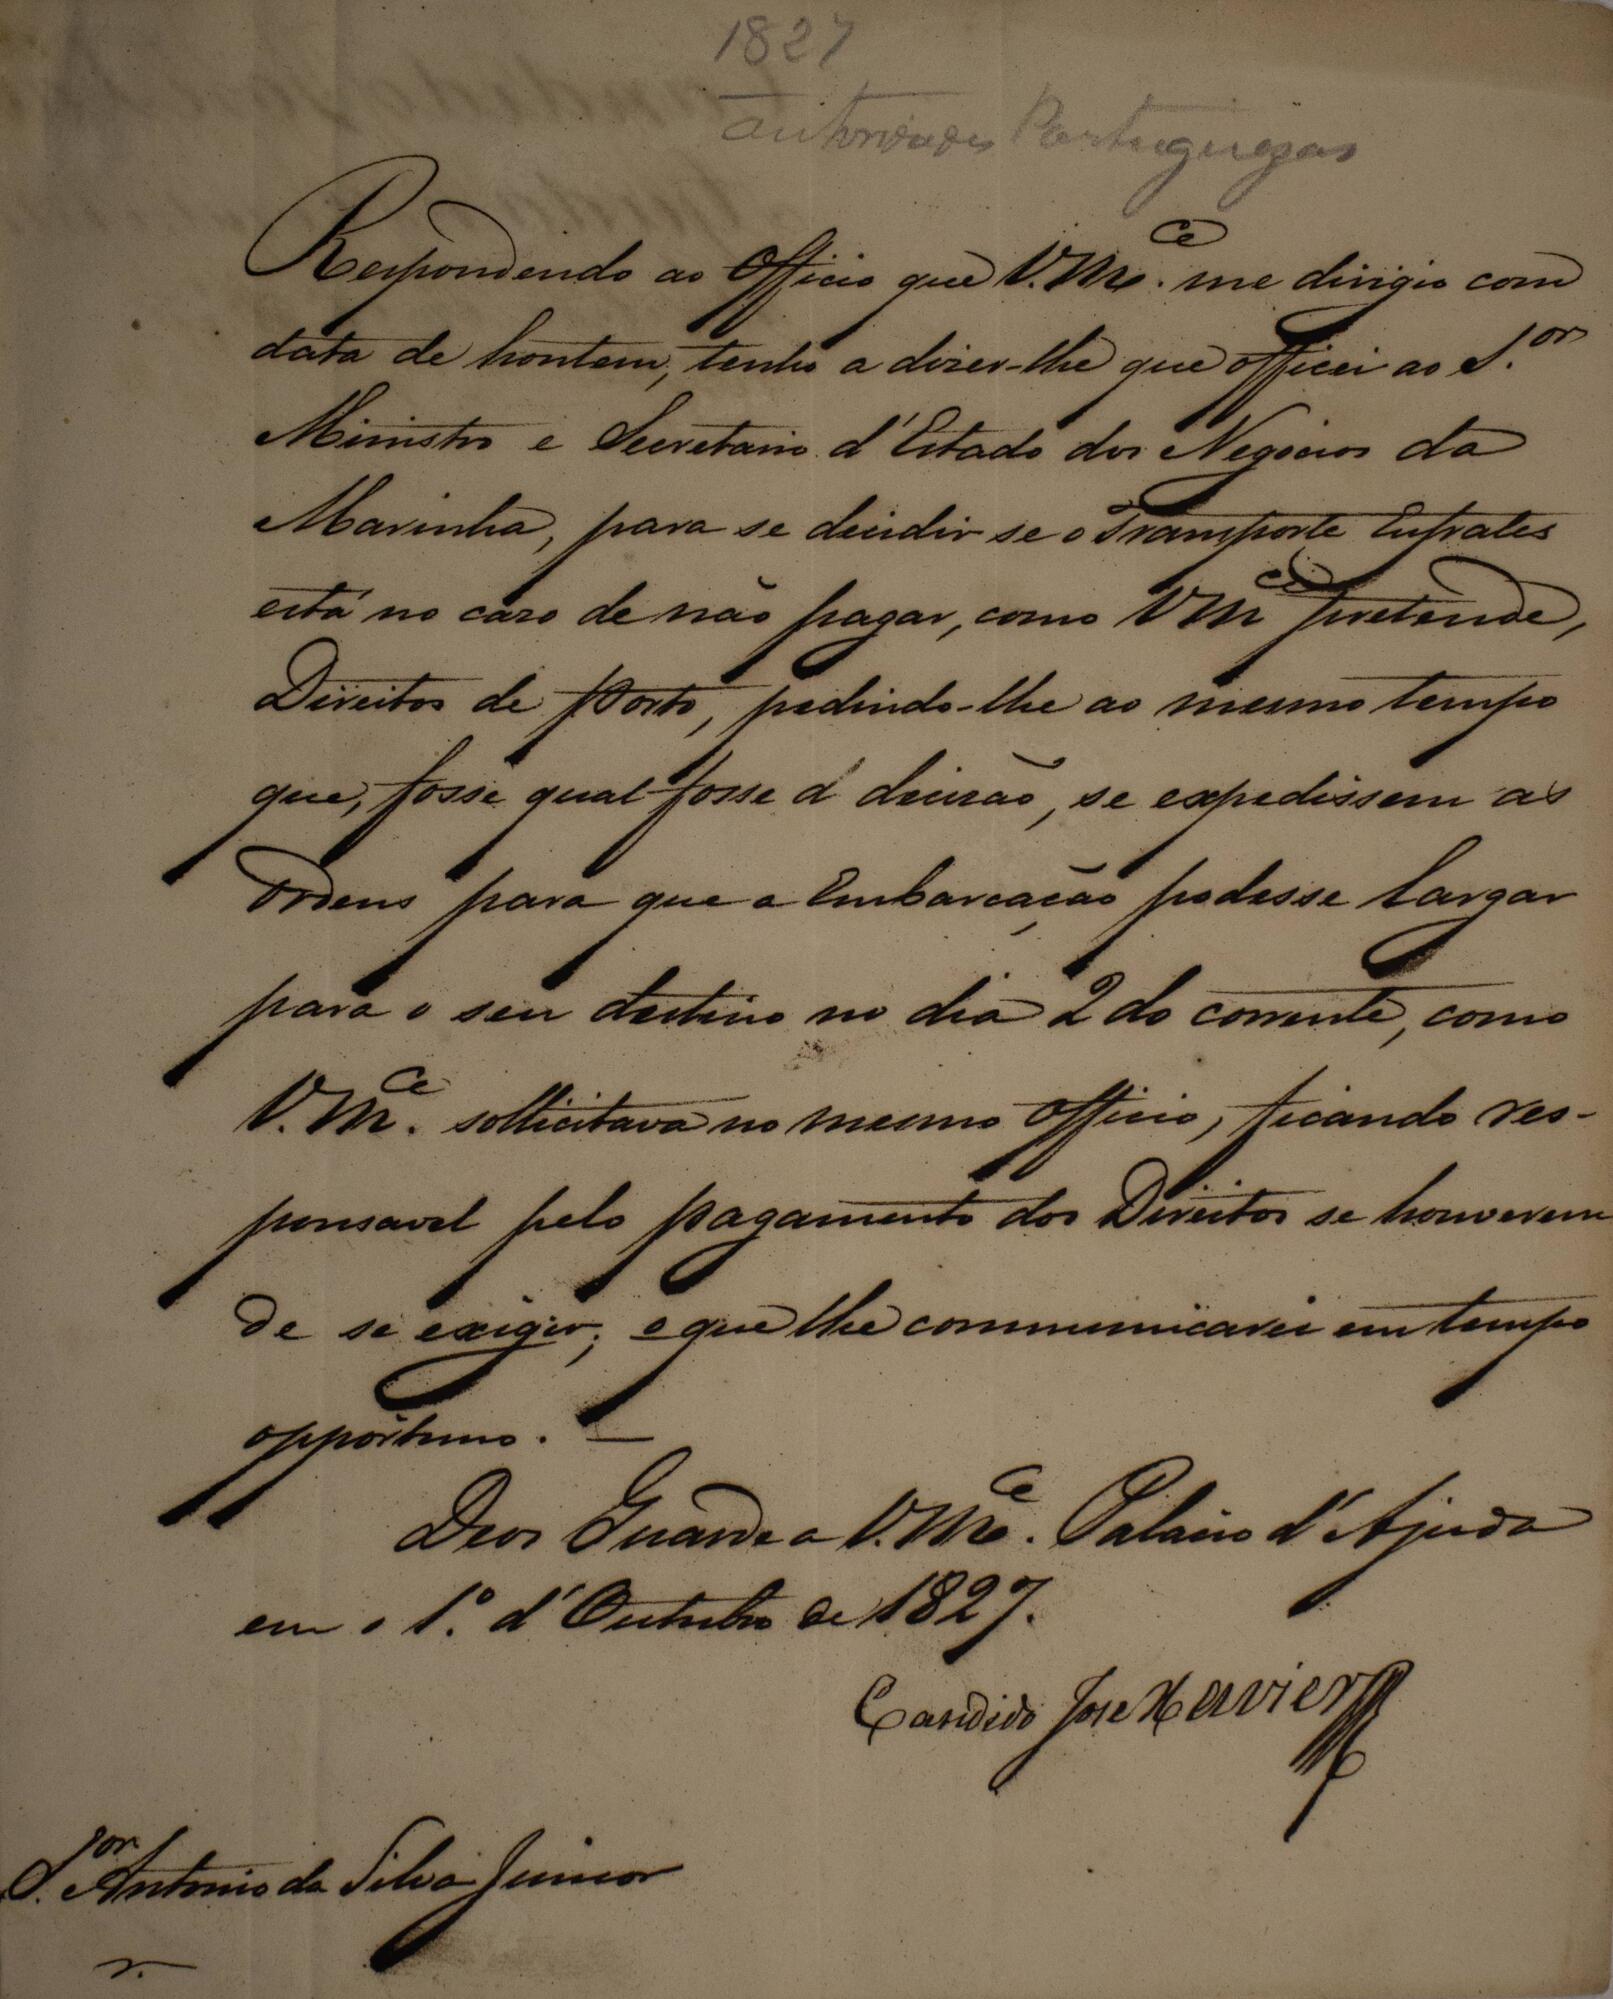 1827
autoridades Portuguezas
Respondendo ao Officio que V.M.ce me dirigio com
data de hontem, tenho a dizer-lhe que officei ao S.or
Ministro e Secretario d'Estado dos Negocios da
Marinha, para se decidir se o Transporte Eufrates
está no caso de não pagar, como V M ce pretende,
Direitos de Porto, pedindo-lhe ao mesmo tempo
que, fosse qual fosse a decizão, se expedissem as
Ordens para que a Embarcação podesse largar
para o seu destino no dia 2 do corrente, como
V.M.ce sollicitava no mesmo Officio, ficando res-
ponsavel pelo pagamento dos Direitos se houverem
de se exigir; o que lhe communicarei em tempo
opportuno. —
Deos Guarde a V.M.ce. Palacio d'Ajuda
em o 1.º d'Outubro de 1827.
Candido Jose Xavier
S.or Antonio da Silva Junior